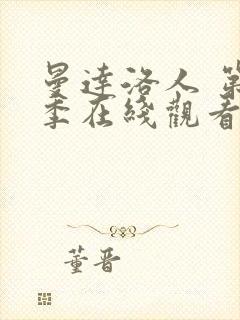 曼達洛人 第
季在綫觀看
董晋